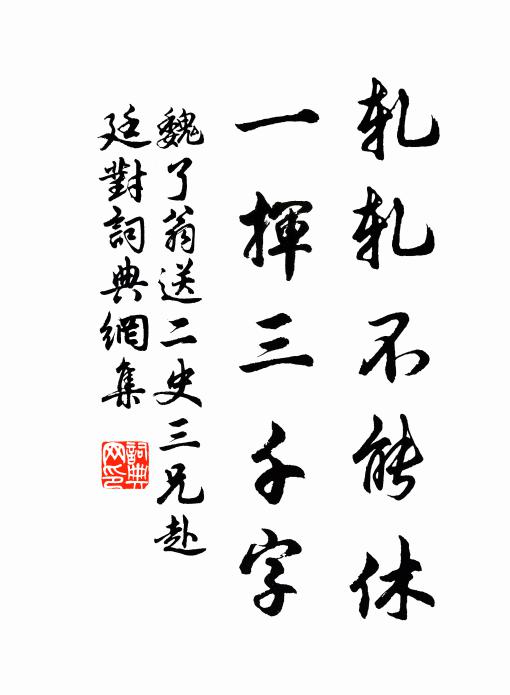 軋軋不能休
一揮三千字
魏了翁送二史三兄赴
廷對詞典網集
詞典
网印